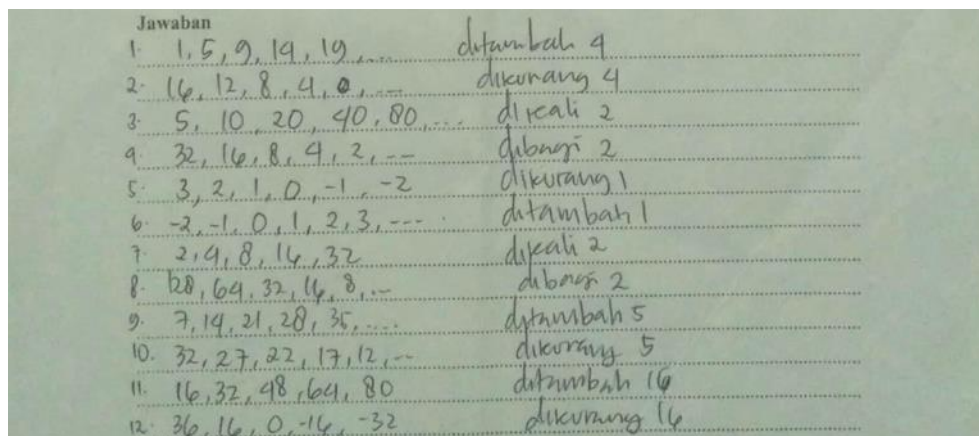 Jawaban
1. 1, 5, 9, 14, 19, .... ditambah 4
2. 16, 12, 8, 4, 0, --- dikurang 4
3. 5, 10, 20, 40, 80, .... dikali 2
4. 32, 16, 8, 4, 2, -- dibagi 2
5. 3, 2, 1, 0, -1, -2 dikurang 1
6. -2, -1, 0, 1, 2, 3, ---- ditambah 1
7. 2, 4, 8, 16, 32 dikali 2
8. 128, 64, 32, 16, 8, .-- dibagi 2
9. 7, 14, 21, 28, 35, .... ditambah 5
10. 32, 27, 22, 17, 12, -- dikurang 5
11. 16, 32, 48, 64, 80 ditambah 16
12. 36, 16, 0, -16, -32 dikurang 16